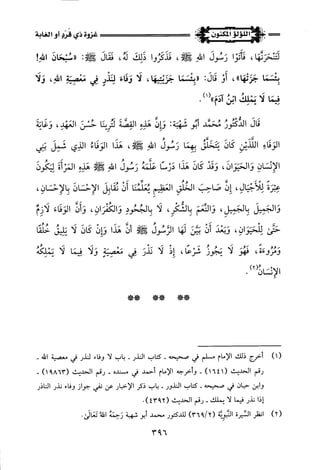 اللؤلؤ المكنون غزوة ذي قرد أو الغابة
لَتَنْحَرَنَّهَا، فَأَتَوْا رَسُولَ اللهِ ﷺ، فَذَكَرُوا ذَلِكَ لَهُ، فَقَالَ ﷺ: «سُبْحَانَ اللهِ!
بِئْسَمَا جَزَتْهَا»، أَوْ قَالَ: «بِئْسَمَا جَزَيْتِيهَا، لَا وَفَاءَ لِنَذْرٍ فِي مَعْصِيَةِ اللهِ، وَلَا
فِيمَا لَا يَمْلِكُ ابْنُ آدَمَ»(١).
قَالَ الدُّكْتُورُ مُحَمَّد أَبُو شَهْبَة: وَإِنَّ هَذِهِ القِصَّةَ لَتُرِينَا حُسْنَ العَهْدِ، وَغَايَةَ
الوَفَاءِ اللَّذَيْنِ كَانَ يَتَخَلَّقُ بِهِمَا رَسُولُ اللهِ ﷺ، هَذَا الوَفَاءُ الذِي شَمِلَ بَنِي
الإِنْسَانِ وَالحَيَوَانِ، وَقَدْ كَانَ هَذَا دَرْسًا عَلَّمَهُ رَسُولُ اللهِ ﷺ هَذِهِ المَرْأَةَ لِيَكُونَ
عِبْرَةً لِلْأَجْيَالِ، إِنَّ صَاحِبَ الخُلُقِ العَظِيمِ يُعَلِّمُنَا أَنْ نُقَابِلَ الإِحْسَانَ بِالإِحْسَانِ،
وَالجَمِيلَ بِالجَمِيلِ، وَالنِّعَمَ بِالشُّكْرِ، لَا بِالجُحُودِ وَالكُفْرَانِ، وَأَنَّ الوَفَاءَ لَازِمٌ
حَتَّى لِلْحَيَوَانِ، وَبَعْدَ أَنْ بَيَّنَ لَهَا الرَّسُولُ ﷺ أَنَّ هَذَا وَإِنْ كَانَ لَا يَلِيقُ خُلُقًا
وَمُرُوءَةً، فَهُوَ لَا يَجُوزُ شَرْعًا، إِذْ لَا نَذْرَ فِي مَعْصِيَةٍ وَلَا فِيمَا لَا يَمْلِكُهُ
الإِنْسَانُ(٢).
** ** **
(١) أخرج ذلك الإمام مسلم في صحيحه ـ كتاب النذر ـ باب لا وفاء لنذر في معصية الله ـ
رقم الحديث (١٦٤١) ـ وأخرجه الإمام أحمد في مسنده ـ رقم الحديث (١٩٨٦٣) ـ
وابن حبان في صحيحه ـ كتاب النذور ـ باب ذكر الإخبار عن نفي جواز وفاء نذر الناذر
إذا نذر فيما لا يملك ـ رقم الحديث (٤٣٩٢).
(٢) انظر السِّيرة النَّبويَّة (٣٦٩/٢) للدكتور محمد أبو شهبة رَحِمَهُ اللهُ تَعَالَى.
٣٩٦